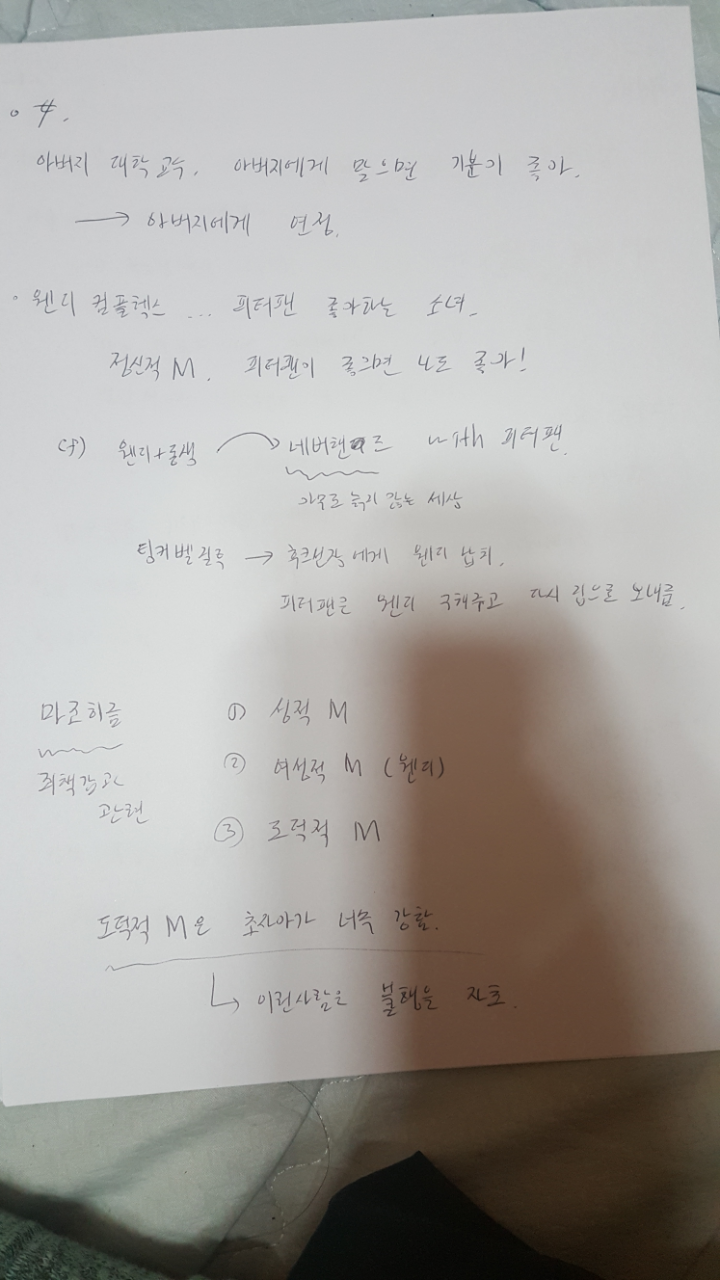 ◦ #.
아버지 대학교수. 아버지에게 맞으면 기분이 좋아.
→ 아버지에게 연정.
◦ 웬디 컴플렉스 ... 피터팬 좋아하는 소녀.
정신적 M. 피터팬이 좋으면 나도 좋아!
cf) 웬디+ → 네버랜드 with 피터팬.
아무도 늙지 않는 세상
팅커벨 질투 → 후크선장에게 웬디 납치.
피터팬은 웬디 구해주고 다시 집으로 보내줌.
마조히즘 ① 성적 M
죄책감과 관련 ② 여성적 M (웬디)
③ 도덕적 M
도덕적 M은 초자아가 너무 강함.
↳ 이런사람은 불행을 자초.